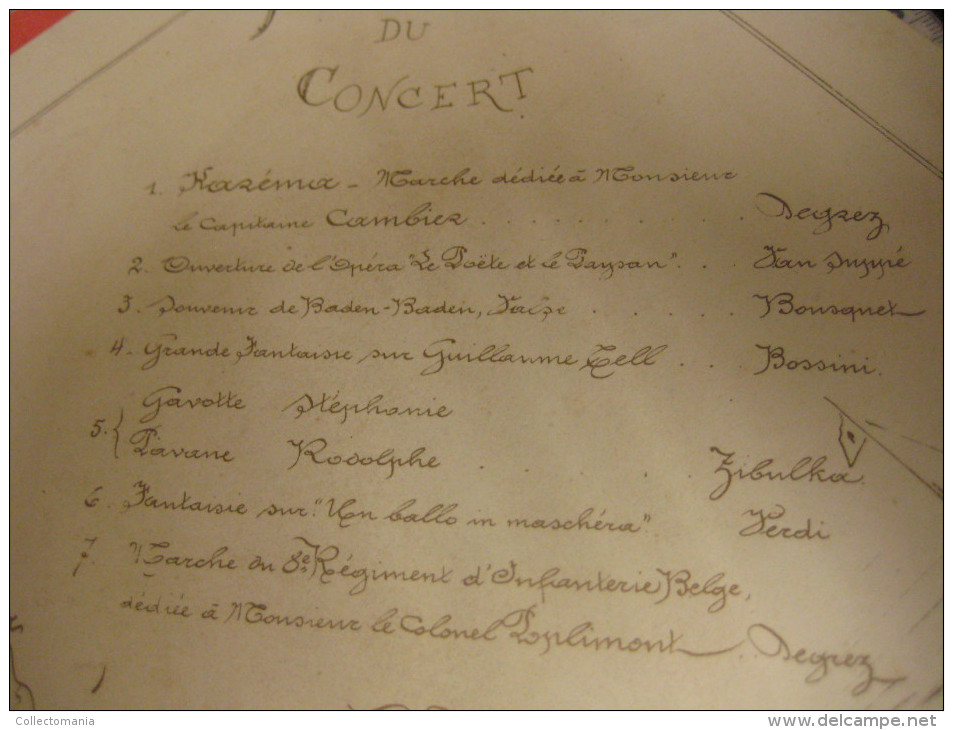 DU
CONCERT
1. Karéma - Marche dédiée à Monsieur
le Capitaine Cambier . . . . . . . . . . Degrez
2. Ouverture de l'Opéra "Le Poëte et le Paysan" . . Van Suppé
3. Souvenir de Baden-Baden, Valse . . . . . . Bousquet
4. Grande Fantaisie sur Guillaume Tell . . . Rossini.
Gavotte Stéphanie
5. { Pavane Rodolphe . . . . . Zibulka.
6. Fantaisie sur "Un ballo in maschéra". Verdi
7. Marche du 8e Régiment d'Infanterie Belge,
dédiée à Monsieur le Colonel Poplimont . Degrez
Collectomania
www.delcampe.net